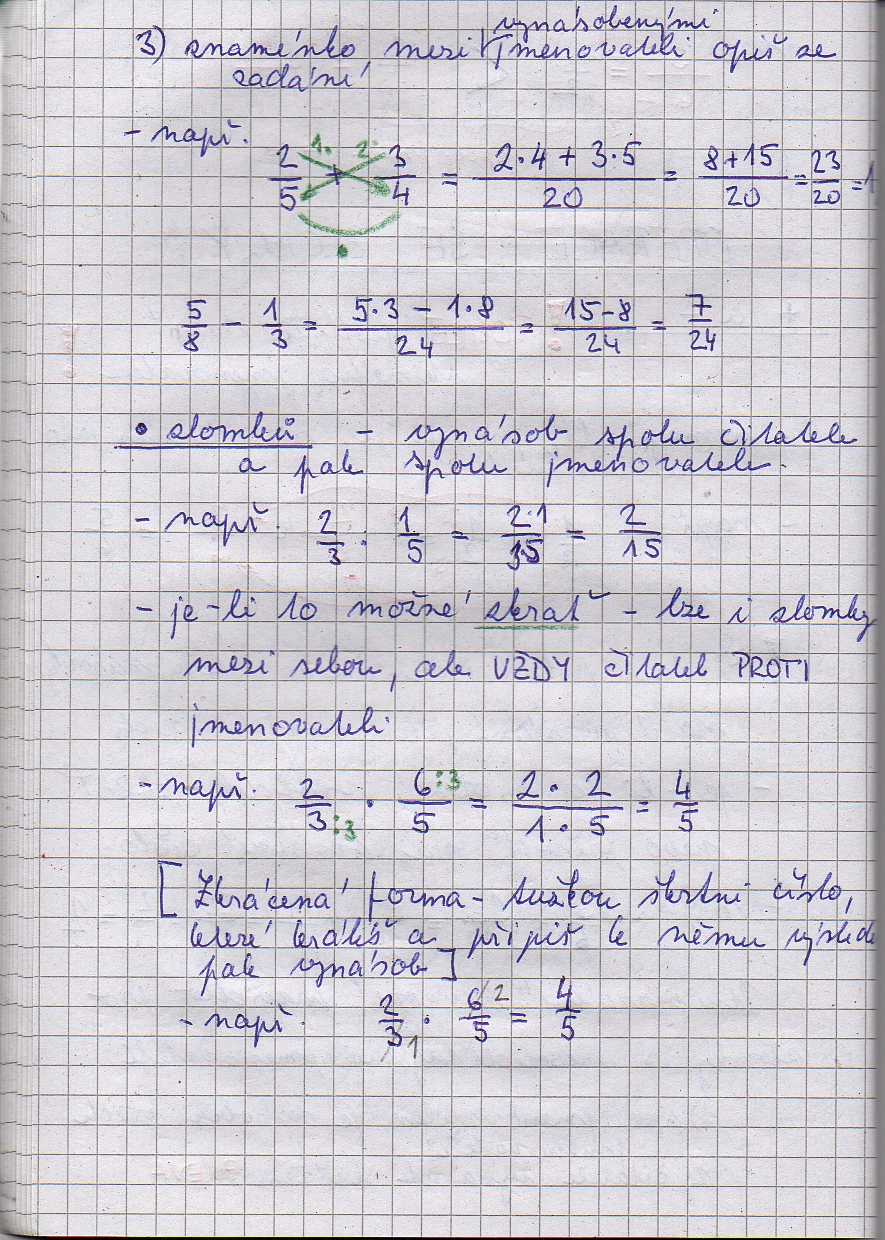 vynásobenými
3) znaménko mezi jmenovateli opiš ze
zadání
- např.
1. 2.
2/5 + 3/4 = (2·4 + 3·5)/20 = (8+15)/20 = 23/20 = 1
•
5/8 - 1/3 = (5·3 - 1·8)/24 = (15-8)/24 = 7/24
• zlomků - vynásob spolu čitatele
a pak spolu jmenovatele.
- např. 2/3 · 1/5 = (2·1)/(3·5) = 2/15
- je-li to možné zkrať - lze i zlomky
mezi sebou, ale VŽDY čitatel PROTI
jmenovateli
- např. 2/3:3 · 6:3/5 = (2·2)/(1·5) = 4/5
[Zkrácená forma - tužkou škrtni číslo,
které krátíš a připiš k němu výslede
pak vynásob]
- např. 2/3 1 · 6/5 2 = 4/5